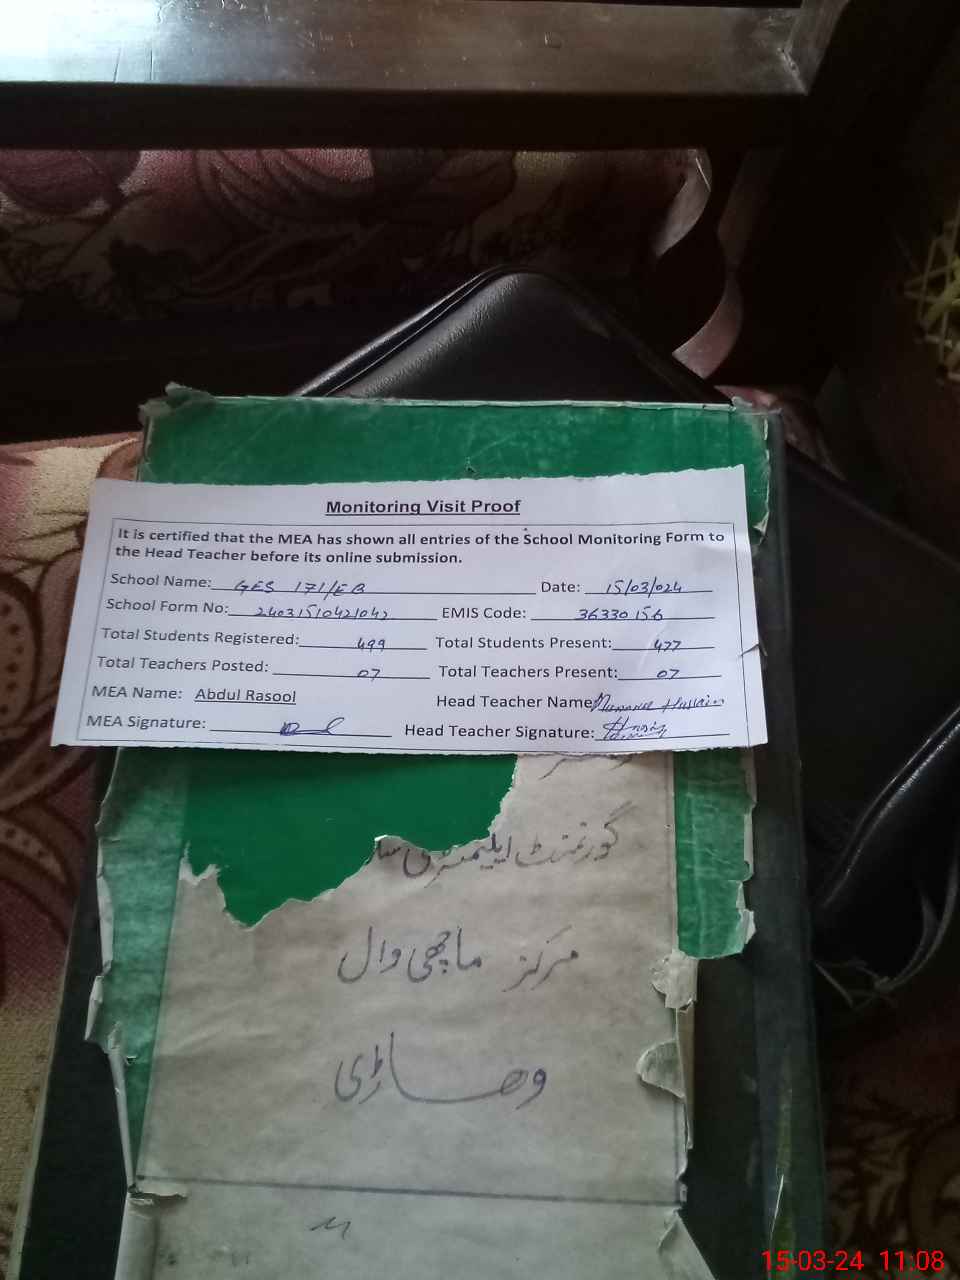 Monitoring Visit Proof
It is certified that the MEA has shown all entries of the School Monitoring Form to
the Head Teacher before its online submission.
School Name: GES 171/EB Date: 15/03/024
School Form No: 24031510421042 EMIS Code: 36330156
Total Students Registered: 499 Total Students Present: 477
Total Teachers Posted: 07 Total Teachers Present: 07
MEA Name: Abdul Rasool Head Teacher Name Hussain
MEA Signature: Head Teacher Signature:
گورنمنٹ ایلیمنٹری
مرکز ماچھی وال
وھاڑی
15-03-24 11:08